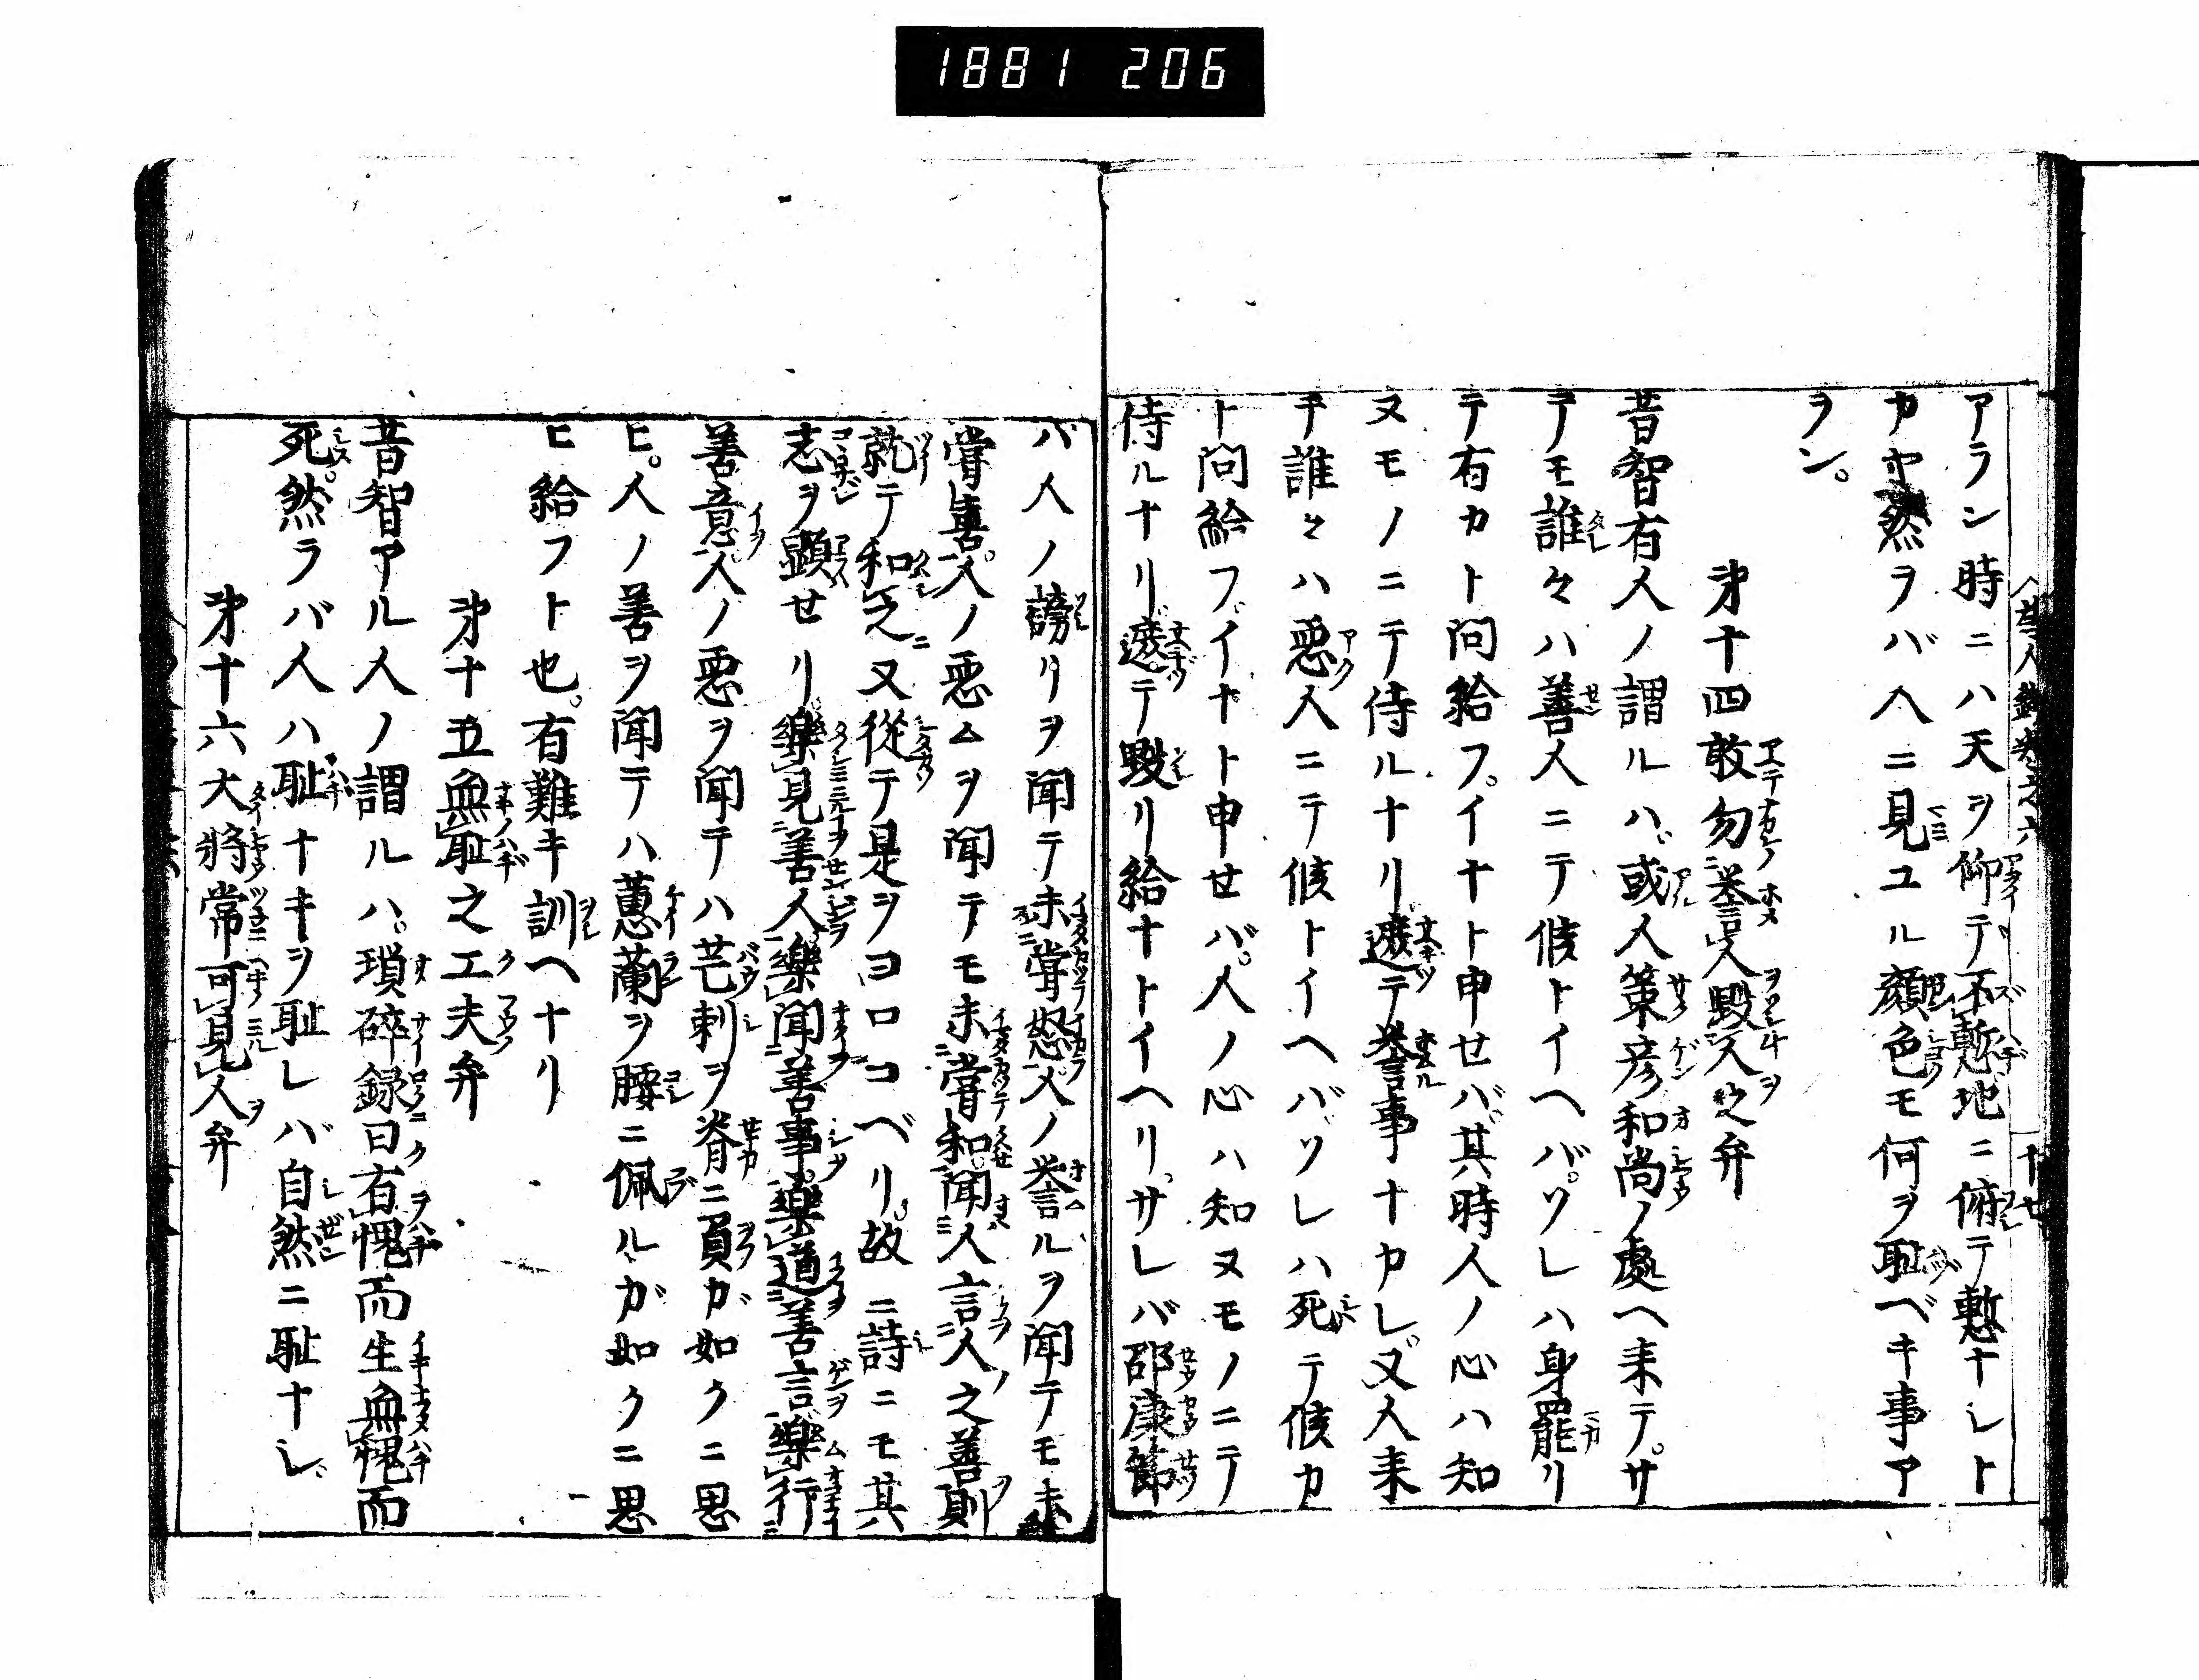 1881 206
アラン時ニハ天ヲ仰テ不慙地ニ俯テ慙ナレト
カヤ然ラバ人ニ見ユル顔色モ何ヲ恥ベキ事ア
ラン。
第十四敢勿誉人毀人之弁
昔智有人ノ謂ルハ或人策彦和尚ノ處ヘ来テ。サ
テモ誰々ハ善人ニテ候トイヘバ。ソレハ身罷リ
テ有カト問給フ。イナト申セバ其時人ノ心ハ知
ヌモノニテ侍ルナリ遽テ誉事ナカレ。又人来
テ誰々ハ悪人ニテ候トイヘバソレハ死テ候カ
ト問給フ。イナト申セバ。人ノ心ハ知ヌモノニテ
侍ルナリ遽テ毀リ給ナトイヘリ。サレバ邵康節
ハ人ノ謗リヲ聞テ未嘗怒人ノ誉ルヲ聞テモ未
嘗喜。人ノ悪ムヲ聞テモ未嘗和。聞人言人之善則
就テ和之又從テ是ヲヨロコベリ。故ニ詩ニモ其
志ヲ顕せリ。樂見善人樂聞善事。樂道善言樂行
善意。人ノ悪ヲ聞テハ芒刺ヲ脊ニ負ガ如クニ思
ヒ。人ノ善ヲ聞テハ蕙蘭ヲ腰ニ佩ルガ如クニ思
ヒ給フト也。有難キ訓ヘナリ
第十五無恥之工夫弁
昔智アル人ノ謂ルハ。瑣碎録曰有愧而生無愧而
死。然ラバ人ハ恥ナキヲ恥レバ自然ニ恥ナシ。
第十六大将常可見人弁